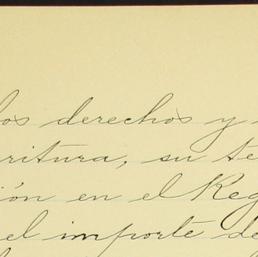 los derechos y
ritura, su te
ión en el Reg
el importe de